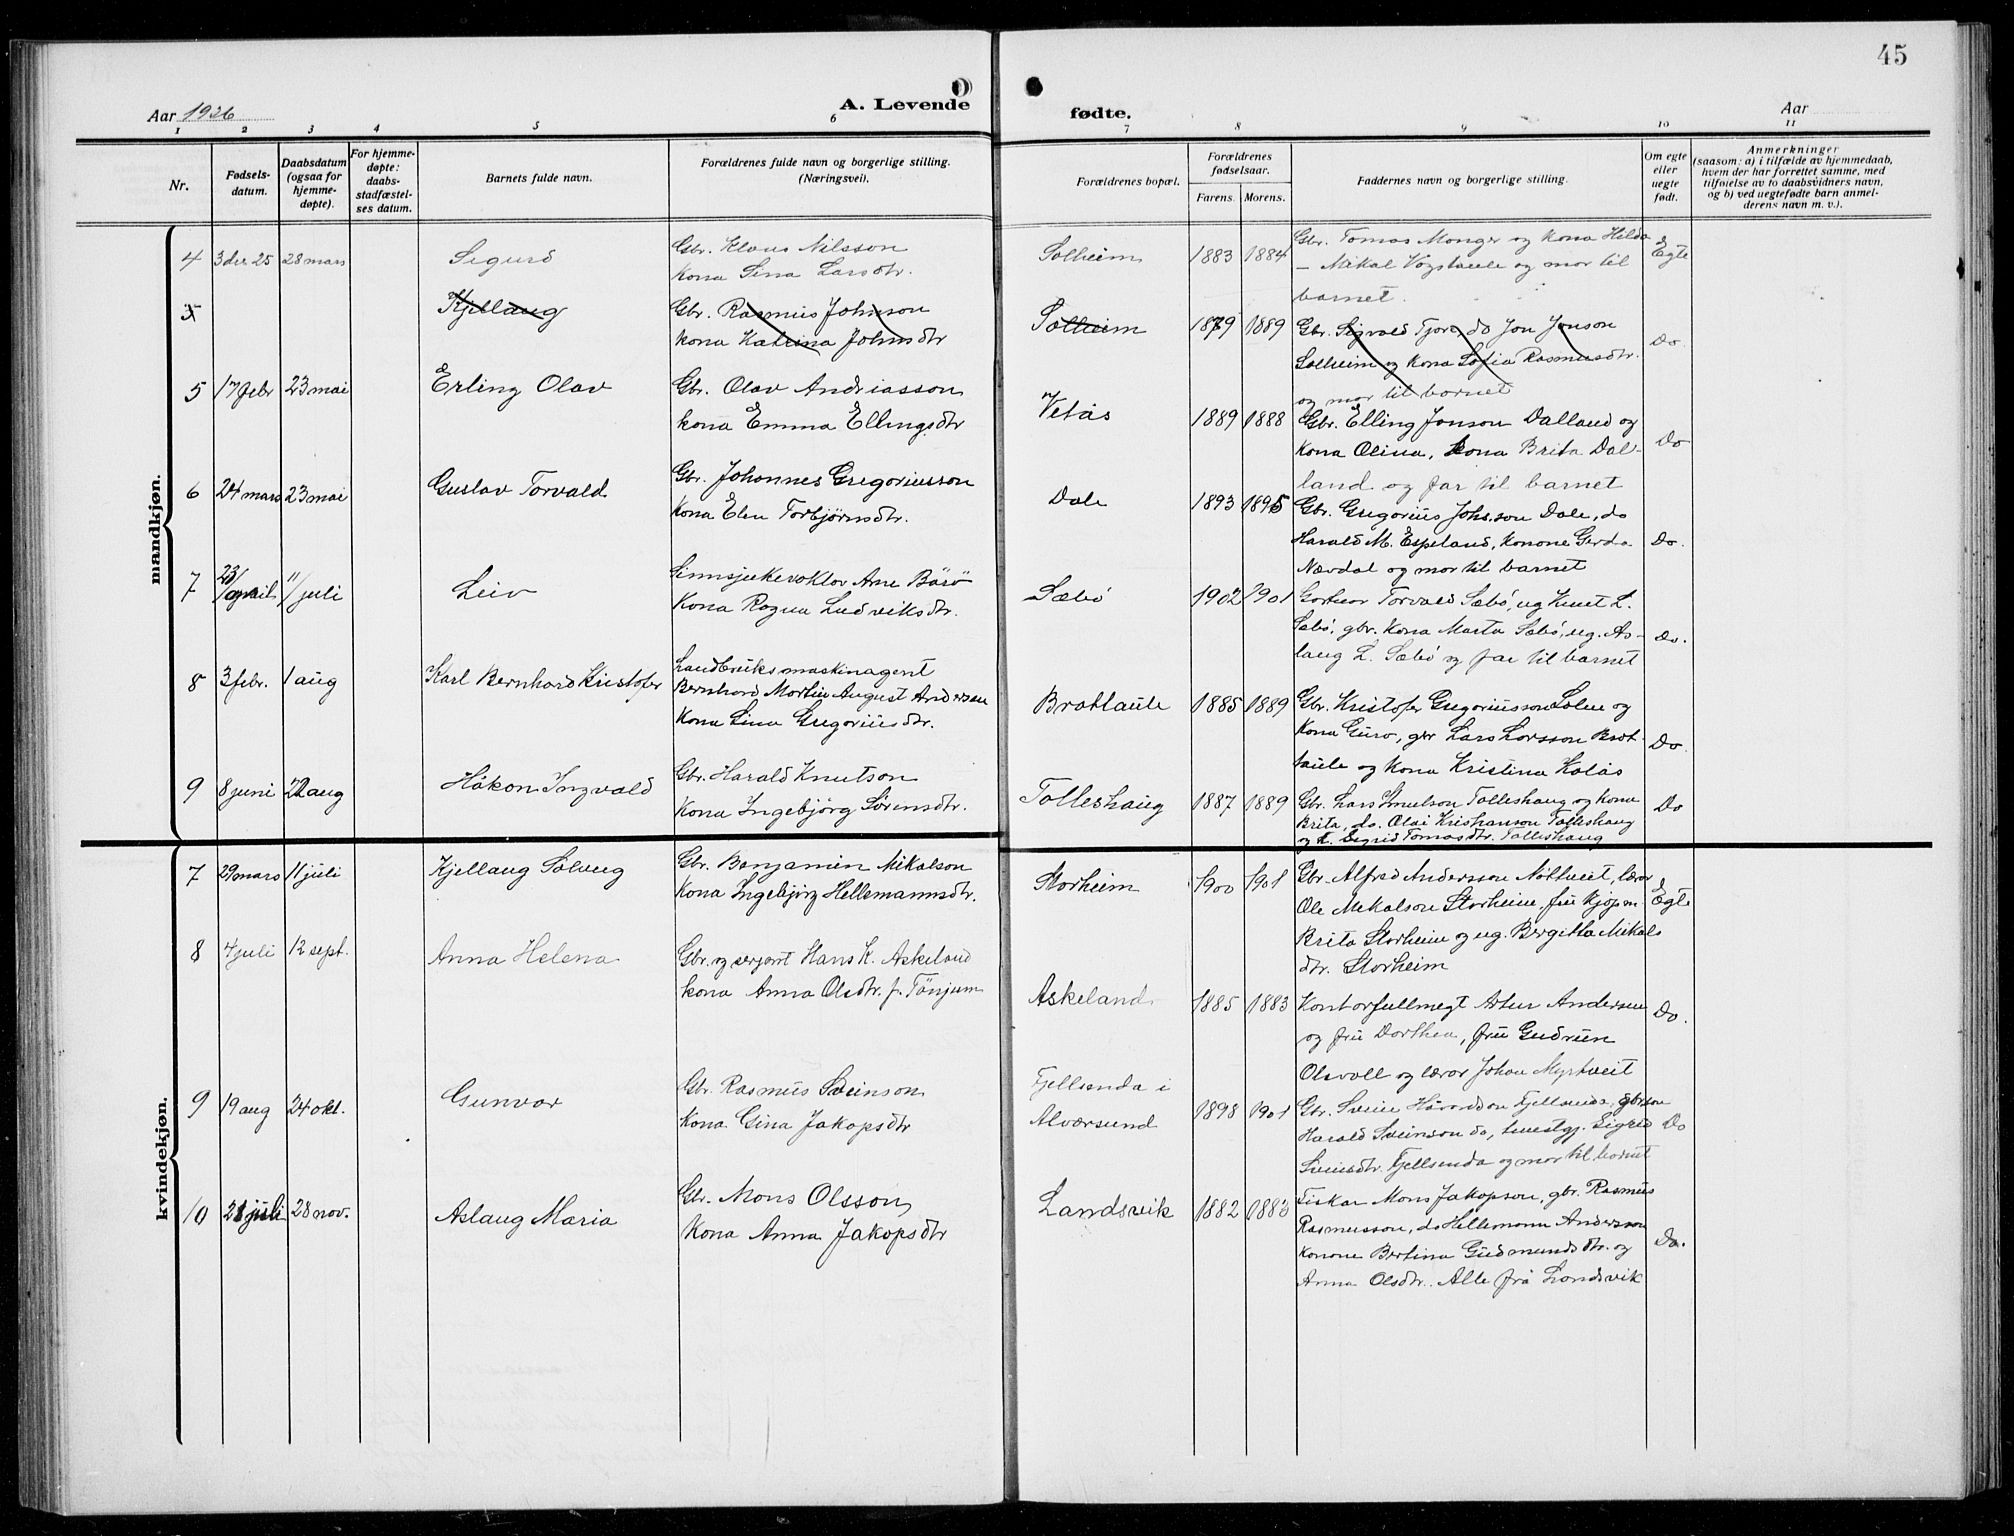 45
Aar 1926
A. Levende
fødte.
Aar
1 2 3 4 5 6 7 8 9 10 11
Nr.
Fødsels-
datum.
Daabsdatum
(ogsaa for
hjemme-
døpte).
For hjemme-
døpte:
daabs-
stadfæstel-
ses datum.
Barnets fulde navn.
Forældrenes fulde navn og borgerlige stilling.
(Næringsvei).
Forældrenes bopæl.
Forældrenes
fødselsaar.
Farens. Morens.
Faddernes navn og borgerlige stilling.
Om egte
eller
uegte
født.
Anmerkninger
(saasom: a) i tilfælde av hjemmedaab,
hvem der har forrettet samme, med
tilføielse av to daabsvidners navn,
og b) ved uegtefødte barn anmel-
derens navn m. v.).
mandkjøn.
4 3 des. 25 28 mars Sigurd
Gbr. Klaus Nilsson
Kona Sina Larsdtr.
Solheim 1883 1884
Gbr. Tomas Monger og Kona Hilda
– Mikal Vogstaule og mor til
barnet.
Egte
5 Kjellaug
Gbr. Rasmus Johnson
Kona Katrina Johnsdtr
Solheim 1879 1889
Gbr. Sigvald Fjore, do Jon Jonson
Solheim og Kona Sofia Rasmusdtr.
og mor til barnet
Do.
5 17 febr 23 mai Erling Olav
Gbr. Olav Andriasson
kona Emma Ellingsdtr
Vetås 1889 1888
Gbr. Elling Jonson Dalland og
Kona Olina, Kona Brita Dal-
land og far til barnet
Do
6 24 mars 23 mai Gustav Torvald
Gbr. Johannes Gregoriusson
Kona Elen Torbjørnsdtr.
Dale 1893 1895
Gbr. Gregorius Johsson Dale, do
Harald M. Espeland, Konone Gerda
Nævdal og mor til barnet
Do.
7 23/april 11/juli Leiv
Sinnsjukevoktar Ane Bårø
Kona Ragna Ludviksdtr.
Sæbø 1902 1901
Gartnar Torvald Sæbø, ug Knut L.
Sæbø, gbr. Kona Marta Sæbø, ug. As-
laug L. Sæbø og far til barnet
Do.
8 3 febr. 1 aug Karl Bernhard Kristofer
Landbruksmaskinagent
Bernhard Martin August Andersen
Kona Lina Gregoriusdtr.
Brottaule 1885 1889
Gbr. Kristofer Gregoriusson Dalen og
Kona Guro, gbr Lars Larsson Brot-
taule og Kona Kristina Kolås
Do.
9 8 juni 22 aug Håkon Ingvald
Gbr. Harald Knutson
Kona Ingebjörg Sörensdtr.
Tolleshaug 1887 1889
Gbr. Lars Knutson Tolleshaug og kona
Brita, do. Olai Kristianson Tolleshaug
og t. Sigrid Tomasdtr. Tolleshaug
Do
kvindekjøn.
7 29 mars 11 juli Kjellaug Solveig
Gbr. Benjamin Mikalson
Kona Ingebjørg Hellemannsdtr.
Storheim 1900 1901
Gbr. Alfred Andersson Nöttveit, lærar
Ole Mikalson Storheim, fru Kjøpm.
Brita Storheim og ug. Bergitta Mikals
dtr. Storheim
Egte
8 4 juli 12 sept. Anna Helena
Gbr. og serjant Hans K. Askeland
kona Anna Olsdtr. f. Tönjum
Askeland 1885 1883
Kontorfullmegt Artur Andersen
og fru Dorthea, fru Gudrun
Olsvoll og lærar Johan Myrtveit
Do.
9 19 aug 24 okt. Gunvor
Gbr. Rasmus Sveinson
Kona Gina Jakopsdtr
Fjellsenda i
Alværsund
1898 1901
Gbr. Svein Håvardson Fjellsenda, gbrson
Harald Sveinson do, tenestgj. Sigrid
Sveinsdtr. Fjellsenda og mor til barnet
Do
10 21 juli 28 nov. Aslaug Maria
Gbr. Mons Olsson
Kona Anna Jakopsdtr
Landsvik 1882 1883
Fiskar Mons Jakopson, gbr. Rasmus
Rasmusson, do Hellemann Andersson
Konone Bertina Gudmundsdtr. og
Anna Olsdtr. Alle frå Landsvik
Do.